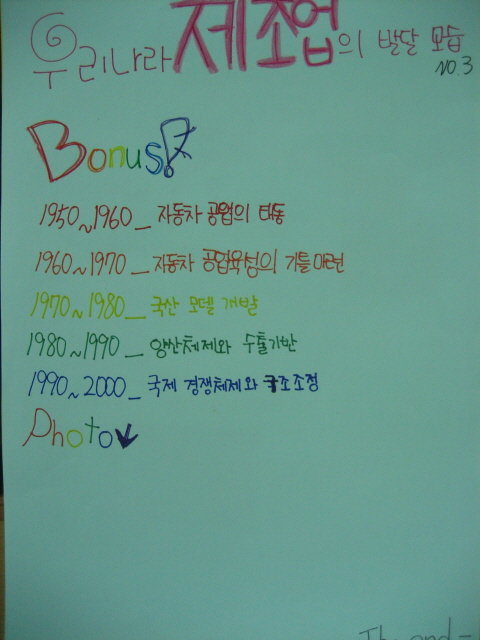 우리나라 제조업의 발달 모습
NO.3
Bonus!
1950~1960_ 자동차 공업의 태동
1960~1970_ 자동차 공업육성의 기틀마련
1970~1980_ 국산 모델 개발
1980~1990_ 양산체제와 수출기반
1990~2000_ 국제 경쟁체제와 구조조정
Photo↓
The end-